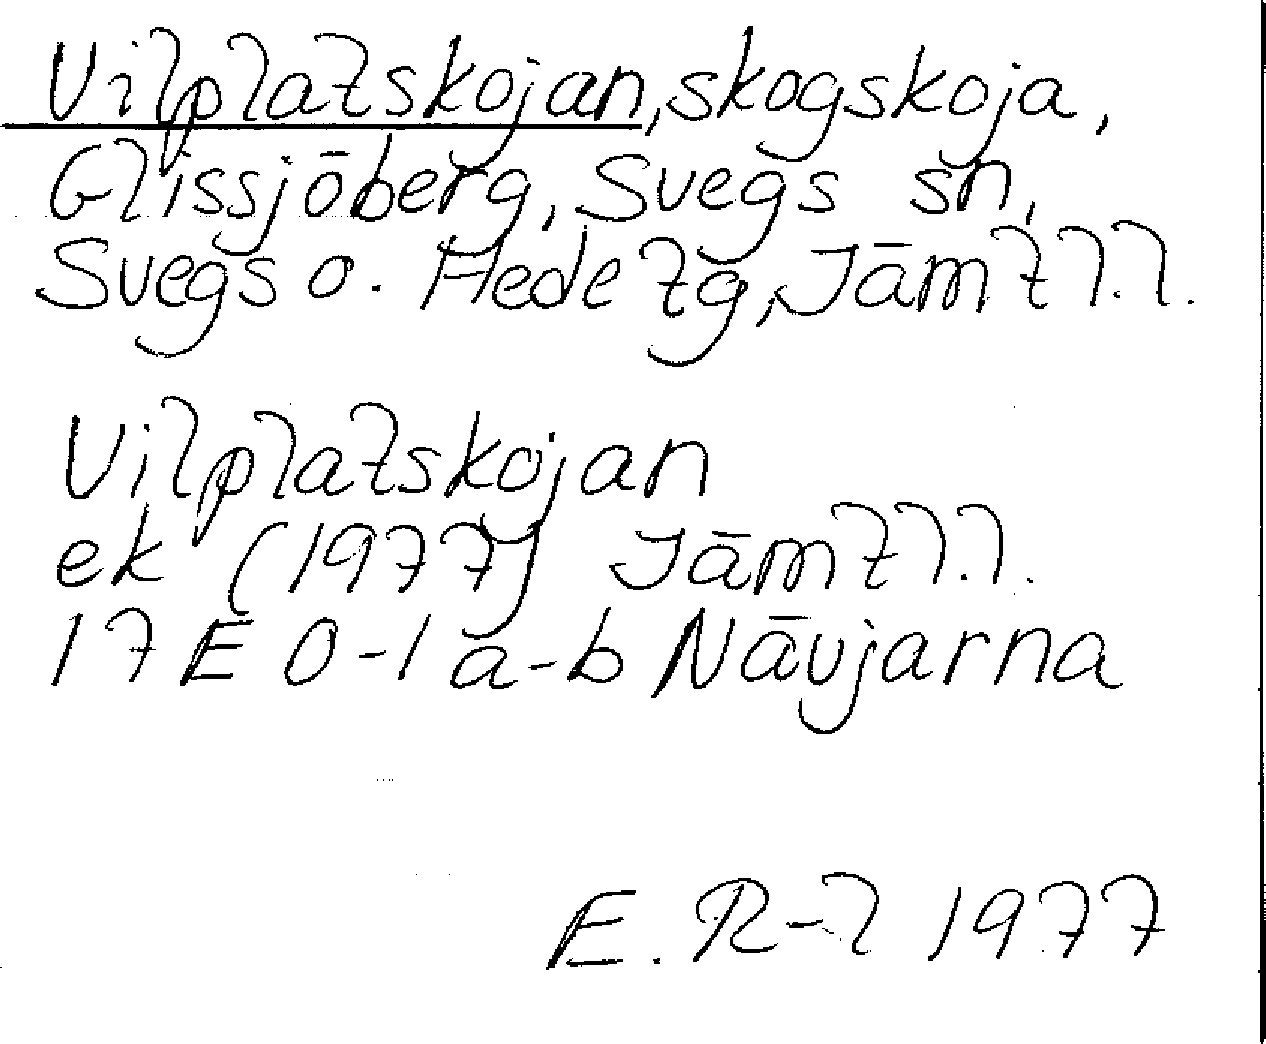 Vilplatskojan, skogskoja,
Glissjöberg, Svegs sn,
Svegs o. Hede tg, Jämtl.l.
Vilplatskojan
ek (1977) Jämtl.l.
17E 0-1 a-b Nävjarna
E. R-l 1977